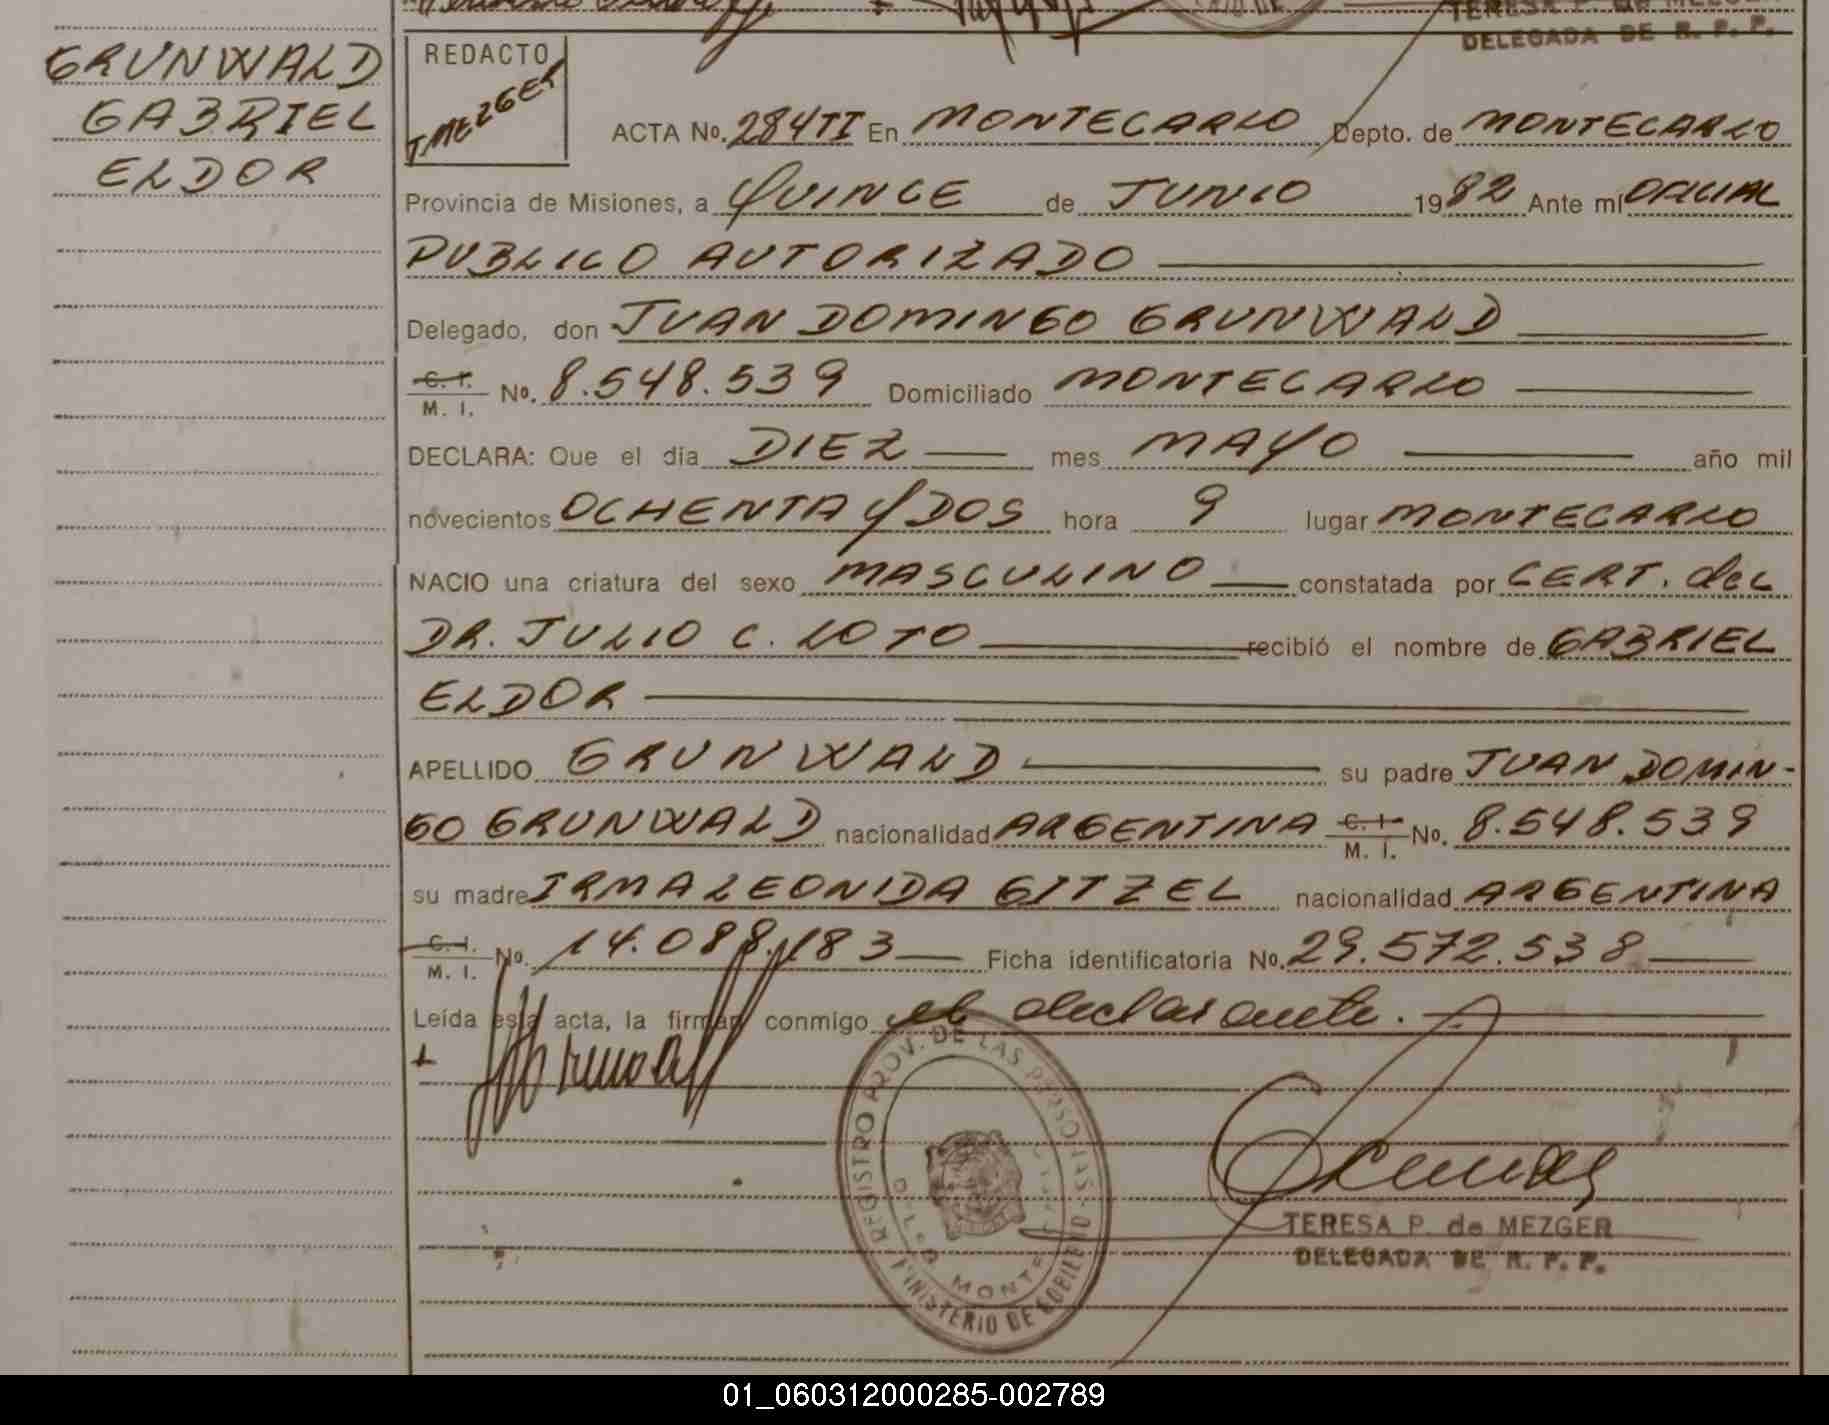 TERESA P. de MEZGER
DELEGADA DE R. P. P.
GRUNWALD
GABRIEL
ELDOR
REDACTO
T. MEZGER
ACTA No. 284TI En MONTECARLO Depto. de MONTECARLO
Provincia de Misiones, a QUINCE de JUNIO 1982 Ante mí OFICIAL
PUBLICO AUTORIZADO
Delegado, don JUAN DOMINGO GRUNWALD
C. I. M. I. No. 8.548.539 Domiciliado MONTECARLO
DECLARA: Que el día DIEZ mes MAYO año mil
novecientos OCHENTA Y DOS hora 9 lugar MONTECARLO
NACIO una criatura del sexo MASCULINO constatada por CERT. del
DR. JULIO C. LOTO recibió el nombre de GABRIEL
ELDOR
APELLIDO GRUNWALD su padre JUAN DOMIN-
GO GRUNWALD nacionalidad ARGENTINA C. I. M. I. No. 8.548.539
su madre IRMA LEONIDA GITZEL nacionalidad ARGENTINA
C. I. M. I. No. 14.088.183 Ficha identificatoria No. 29.572.538
Leída esta acta, la firman conmigo el declarante.
REGISTRO PROV. DE LAS PERSONAS
MINISTERIO DE GOBIERNO
TERESA P. de MEZGER
DELEGADA DE R. P. P.
01_060312000285-002789